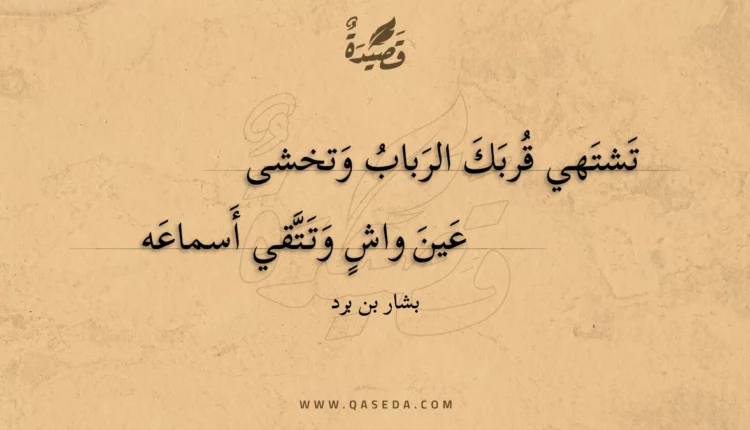 قَصِيدَةٌ
تَشتَهي قُربَكَ الرَبابُ وَتخشى
عَينَ واشٍ وَتَتَّقي أَسماعَه
بشار بن برد
WWW.QASEDA.COM